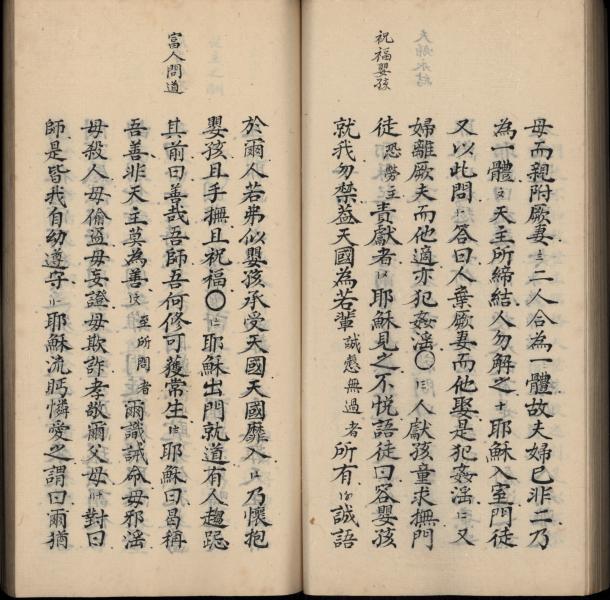 祝福嬰孩
母而親附厥妻二人合為一體故夫婦已非二乃
為一體天主所締結人勿解之十耶穌入室門徒
又以此問答曰人棄厥妻而他娶是犯姦淫又
婦離厥夫而他適亦犯姦淫〇人獻孩童求撫門
徒恐勞主責獻者耶穌見之不悅語徒曰容嬰孩
就我勿禁葢天國為若輩誠慤無過者所有誠語
富人問道
於爾人若弗似嬰孩承受天國天國靡入乃懷抱
嬰孩且手撫且祝福〇耶穌出門就道有人趨跽
其前曰善哉吾師吾何修可獲常生耶穌曰曷稱
吾善非天主莫為善至所問者爾識誡命毋邪淫
毋殺人毋偷盜毋妄證毋欺詐孝敬爾父母對曰
師是皆我自幼遵守耶穌流眄憐愛之謂曰爾猶